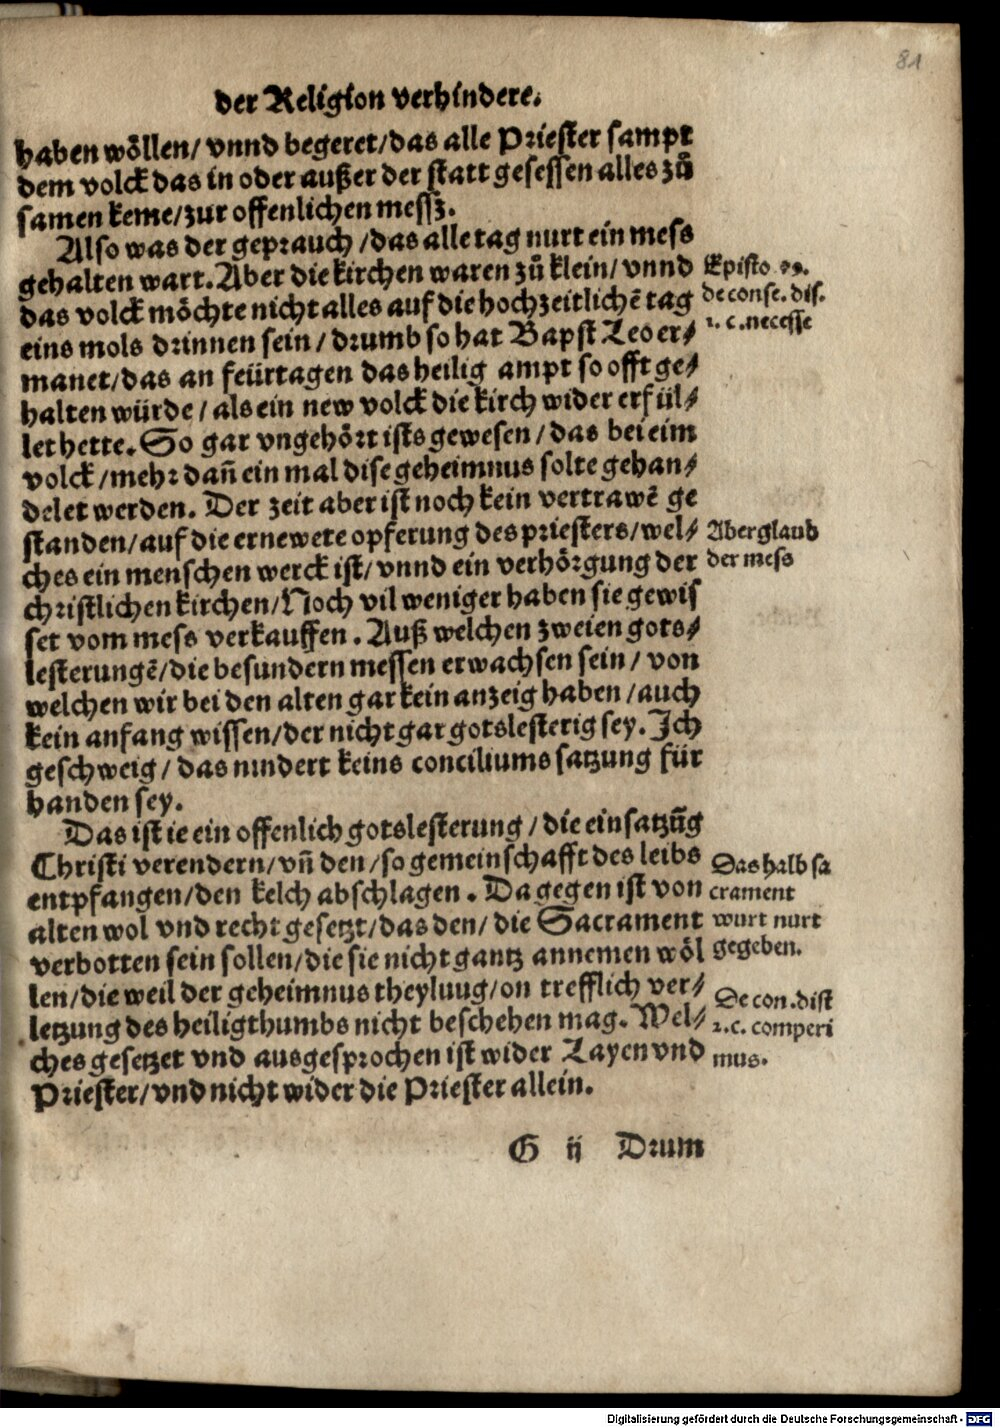 81
der Religion verhindere.
haben wöllen/ vnnd begeret/das alle Priester sampt
dem volck das in oder außer der statt gesessen alles zů
samen keme/zur offenlichen messz.
Also was der geprauch /das alle tag nurt ein mess
gehalten wart. Aber die kirchen waren zů klein/ vnnd
das volck möchte nicht alles auf die hochzeitlichē tag
eins mols drinnen sein/ drumb so hat Bapst Leo er⸗
manet/das an feürtagen das heilig ampt so offt ge⸗
halten würde / als ein new volck die kirch wider erfül⸗
let hette. So gar vngehört ists gewesen/das bei eim
volck /mehr dañ ein mal dise geheimnus solte gehan⸗
delet werden. Der zeit aber ist noch kein vertrawē ge
standen/auf die ernewete opferung des priesters/wel⸗
ches ein menschen werck ist/ vnnd ein verhörgung der
christlichen kirchen/Noch vil weniger haben sie gewis
set vom mess verkauffen. Auß welchen zweien gots⸗
lesterungē/die besundern messen erwachsen sein/ von
welchen wir bei den alten gar kein anzeig haben /auch
kein anfang wissen/der nicht gar gotslesterig sey. Ich
geschweig/ das nindert keins conciliums satzung für
handen sey.
Das ist ie ein offenlich gotslesterung /die einsatzūg
Christi verendern/vñ den/so gemeinschafft des leibs
entpfangen/den kelch abschlagen. Dagegen ist von
alten wol vnd recht gesetzt/das den/ die Sacrament
verbotten sein sollen/die sie nicht gantz annemen wöl
len/die weil der geheimnus theyluug/on trefflich ver⸗
letzung des heiligthumbs nicht beschehen mag. Wel⸗
ches gesetzet vnd ausgesprochen ist wider Layen vnd
Priester/vnd nicht wider die Priester allein.
Episto
de conse. dis.
1. c. necesse
Aberglaub
der mess
Das halb sa
crament
wurt nurt
gegeben.
De con. dist
2. c. comperi
mus.
G ij Drum
Digitalisierung gefördert durch die Deutsche Forschungsgemeinschaft - DFG